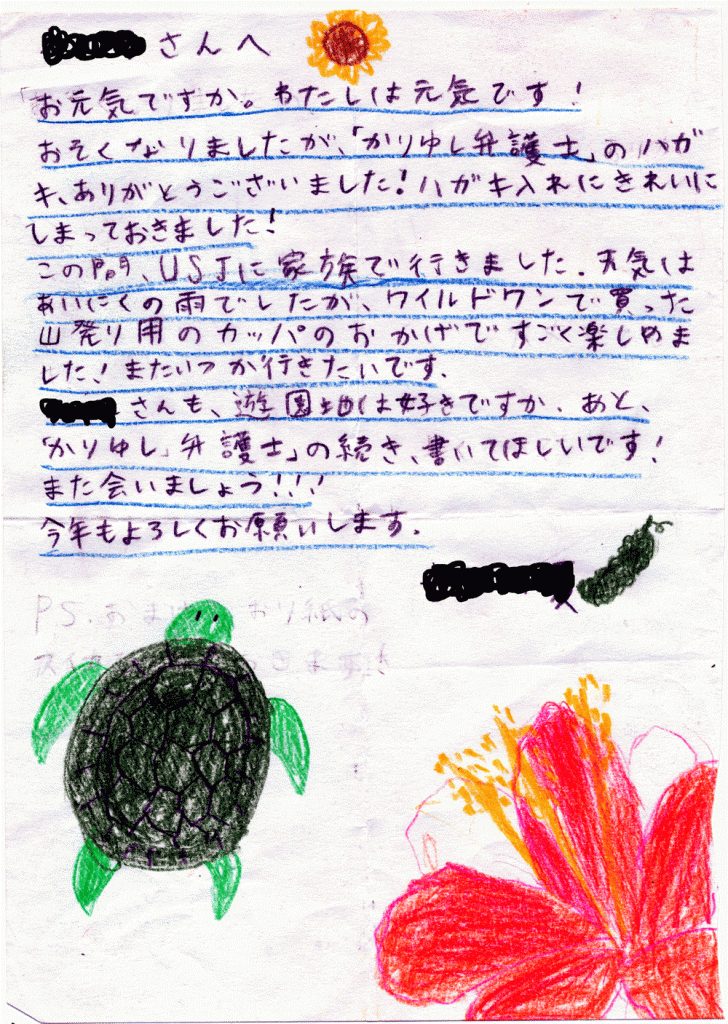 さんへ
「お元気ですか。わたしは元気です!
おそくなりましたが、「かりゆし弁護士」のハガ
キ、ありがとうございました!ハガキ入れにきれいに
しまっておきました!
この間、USJに家族で行きました。天気は
あいにくの雨でしたが、ワイルドワンで買った
山登り用のカッパのおかげですごく楽しめま
した!またいつか行きたいです。
さんも、遊園地は好きですか。あと、
「かりゆし」弁護士」の続き、書いてほしいです!
また会いましょう!!!
今年もよろしくお願いします。
P.S.おまけ おり紙の
きます!